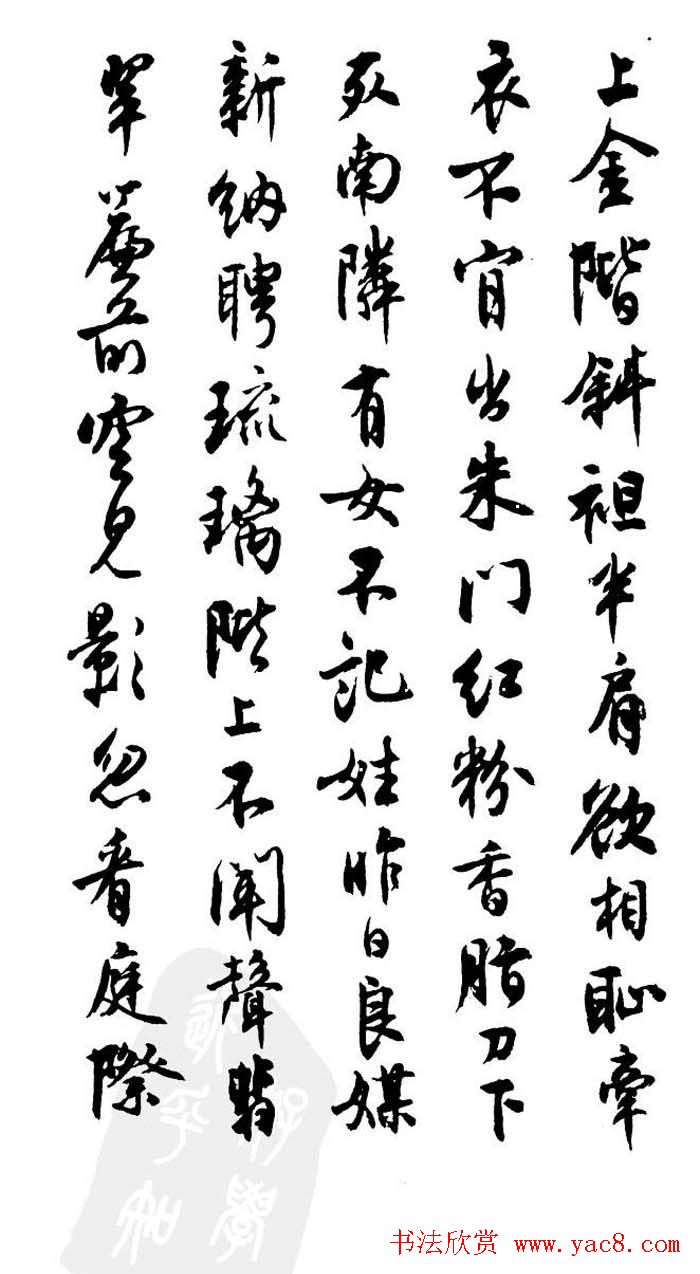 上金階斜袒半肩欲相恥牽
衣不肯出朱门紅粉香脂刀下
死南隣有女不記姓昨日良媒
新納聘琉璃階上不闻聲翡
翠簾前空見影忽看庭際
书法欣赏 www.yac8.com